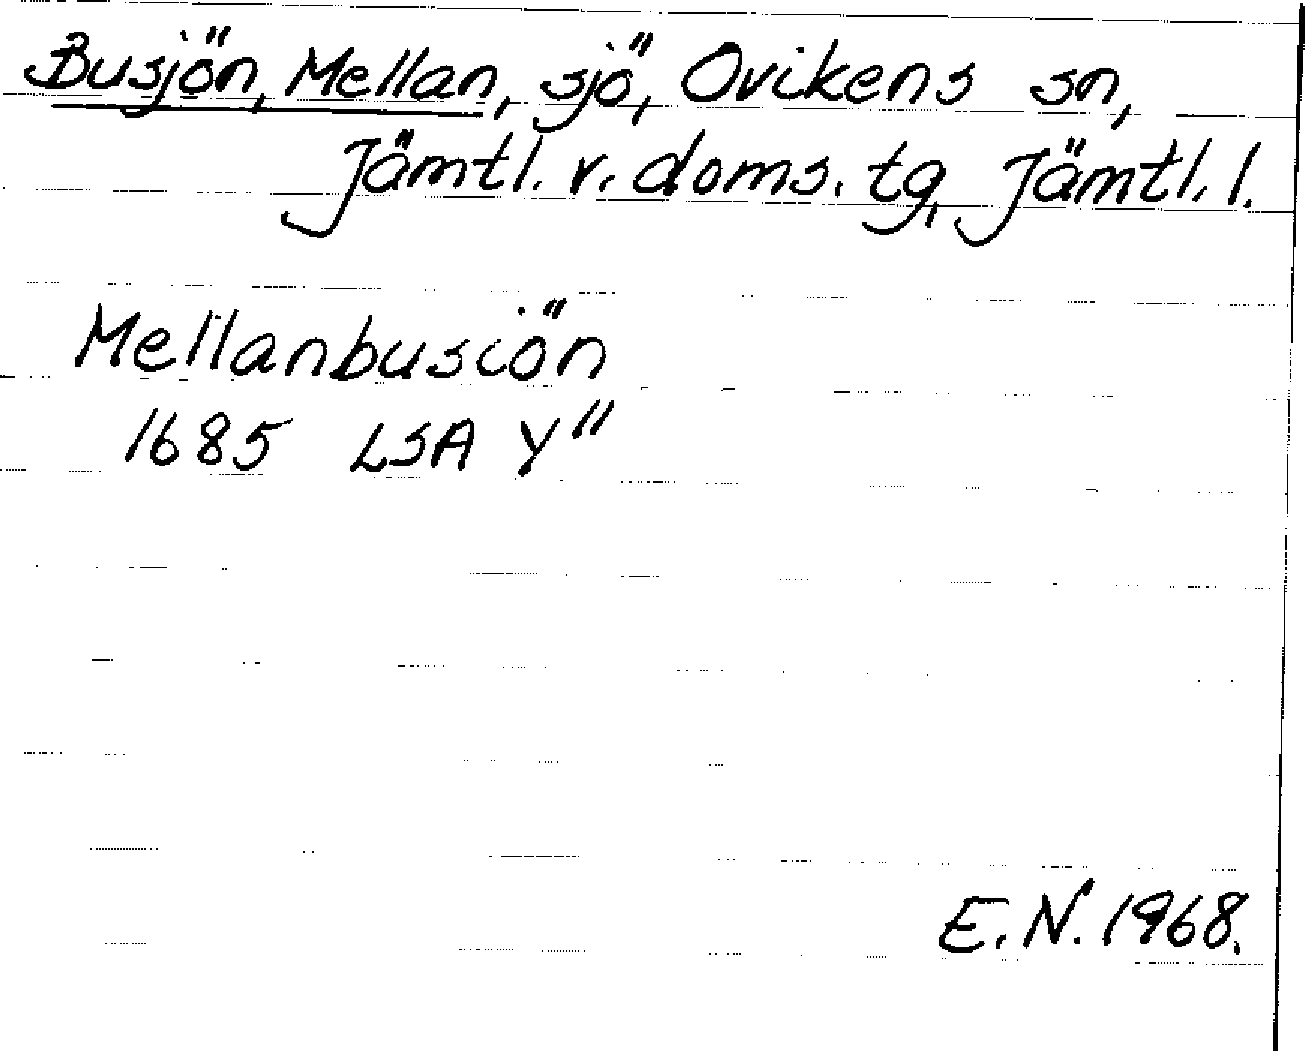 Busjön, Mellan, sjö, Ovikens sn,
Jämtl. v. doms. tg, Jämtl. l.
Mellanbusiön
1685 LSA Y"
E.N. 1968.